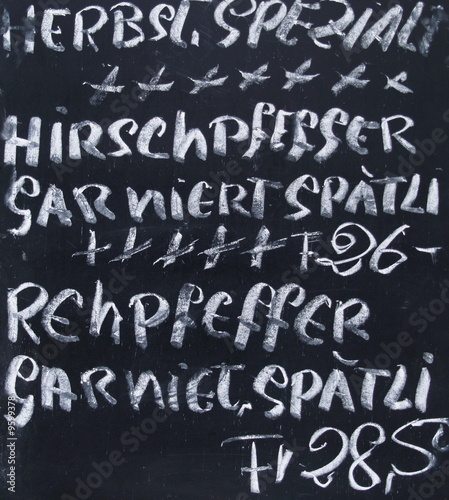 HERBST, SPEZIALI
HIRSCHPFEFFER
GARNIERT SPÄTLI
Fr 26-
REHPFEFFER
GARNIET, SPÄTLI
Fr 28,5